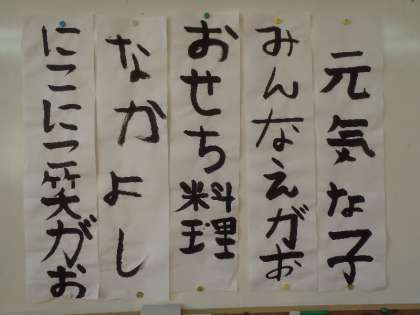 元気な子
みんなえがお
おせち料理
なかよし
にこにこ笑がお